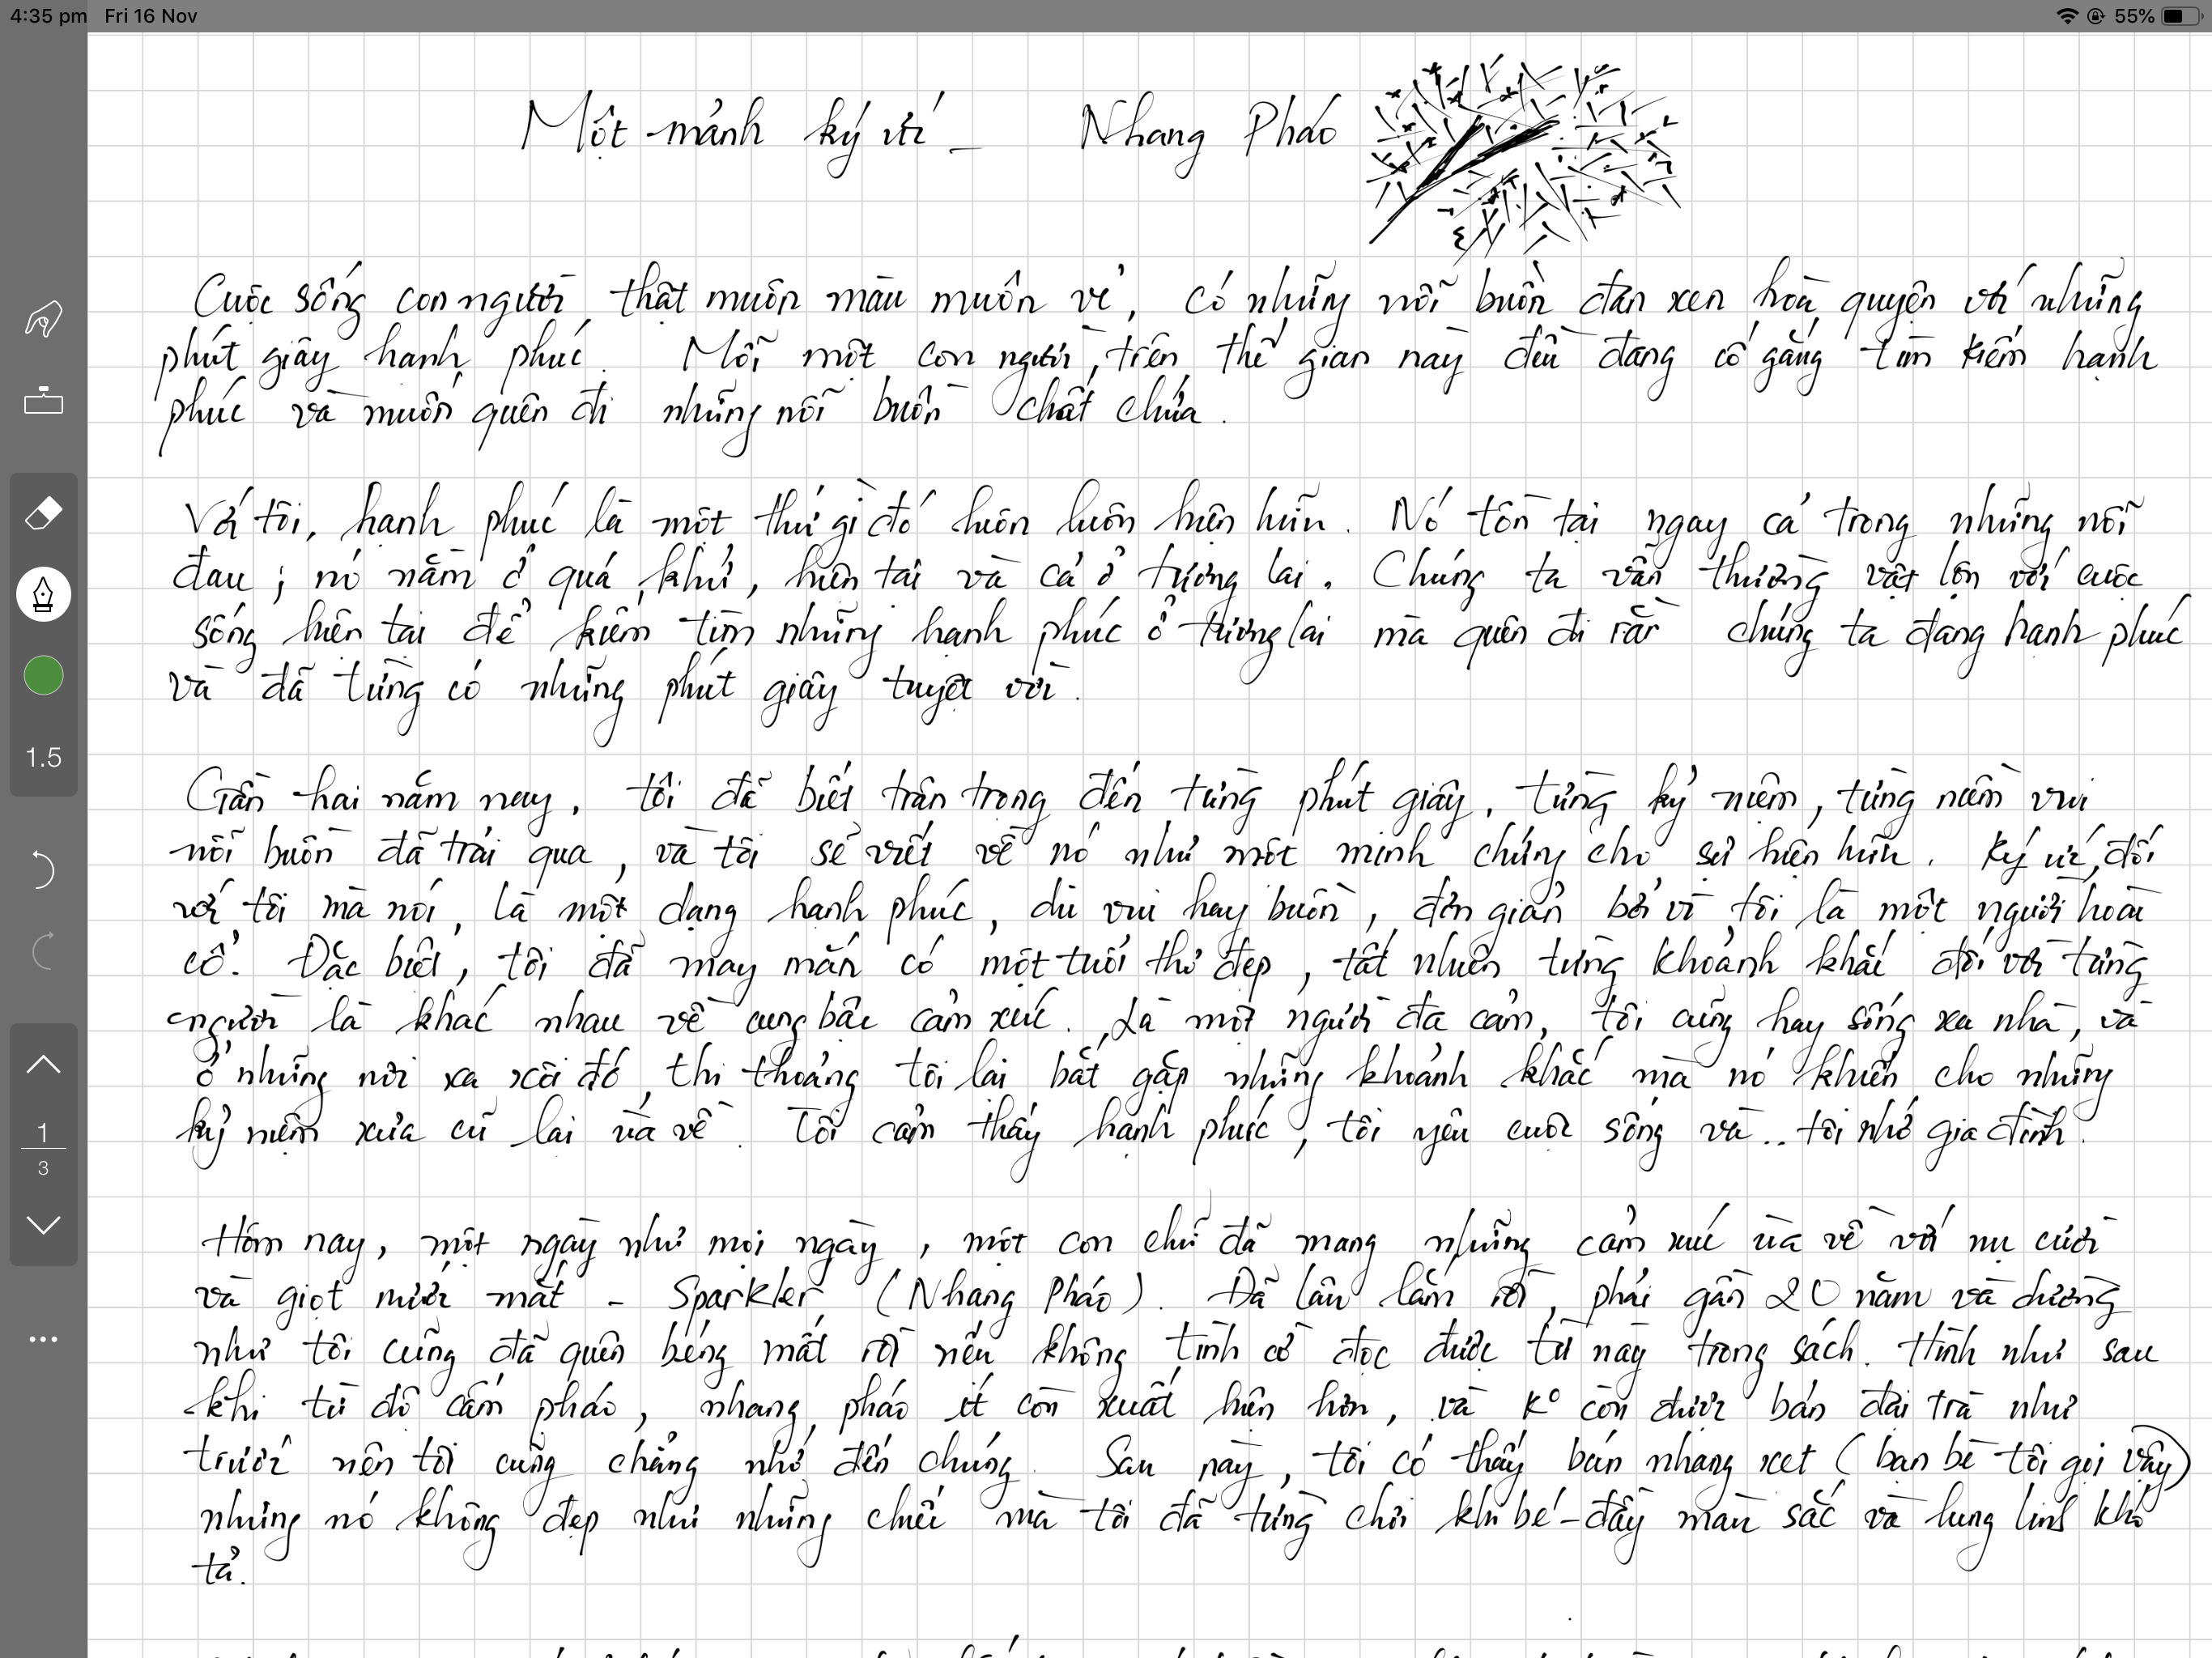 4:35 pm Fri 16 Nov 55%
Một mảnh ký ức - Nhang Pháo
Cuộc sống con người thật muôn màu muôn vẻ, có những nỗi buồn đan xen hoà quyện với những
phút giây hạnh phúc. Mỗi một con người trên thế gian này đều đang cố gắng tìm kiếm hạnh
phúc và muốn quên đi những nỗi buồn chất chứa.
Với tôi, hạnh phúc là một thứ gì đó luôn luôn hiện hữu. Nó tồn tại ngay cả trong những nỗi
đau; nó nằm ở quá khứ, hiện tại và cả ở tương lai. Chúng ta vẫn thường vật lộn với cuộc
sống hiện tại để kiếm tìm những hạnh phúc ở tương lai mà quên đi rằng chúng ta đang hạnh phúc
và đã từng có những phút giây tuyệt vời.
1.5
Gần hai năm nay, tôi đã biết trân trọng đến từng phút giây, từng kỷ niệm, từng niềm vui
nỗi buồn đã trải qua, và tôi sẽ viết về nó như một minh chứng cho sự hiện hữu. Ký ức, đối
với tôi mà nói, là một dạng hạnh phúc, dù vui hay buồn, đơn giản bởi vì tôi là một người hoài
cổ. Đặc biệt, tôi đã may mắn có một tuổi thơ đẹp, tất nhiên từng khoảnh khắc đối với từng
người là khác nhau về cung bậc cảm xúc. Là một người đa cảm, tôi cũng hay sống xa nhà, và
ở những nơi xa xôi đó, thi thoảng tôi lại bắt gặp những khoảnh khắc mà nó khiến cho những
kỷ niệm xưa cũ lại ùa về. Tôi cảm thấy hạnh phúc, tôi yêu cuộc sống và.. tôi nhớ gia đình.
1
3
Hôm nay, một ngày như mọi ngày, một con chữ đã mang những cảm xúc ùa về với nụ cười
và giọt nước mắt - Sparkler (Nhang Pháo). Đã lâu lắm rồi, phải gần 20 năm và dường
như tôi cũng đã quên béng mất rồi nếu không tình cờ đọc được từ này trong sách. Hình như sau
khi từ đó cấm pháo, nhang pháo ít còn xuất hiện hơn, và K° còn được bán đại trà như
trước nên tôi cũng chẳng nhớ đến chúng. Sau này, tôi có thấy bán nhang xẹt (bạn bè tôi gọi vậy)
nhưng nó không đẹp như những chiếc mà tôi đã từng chơi khi bé - đầy màu sắc và lung linh khó
tả.